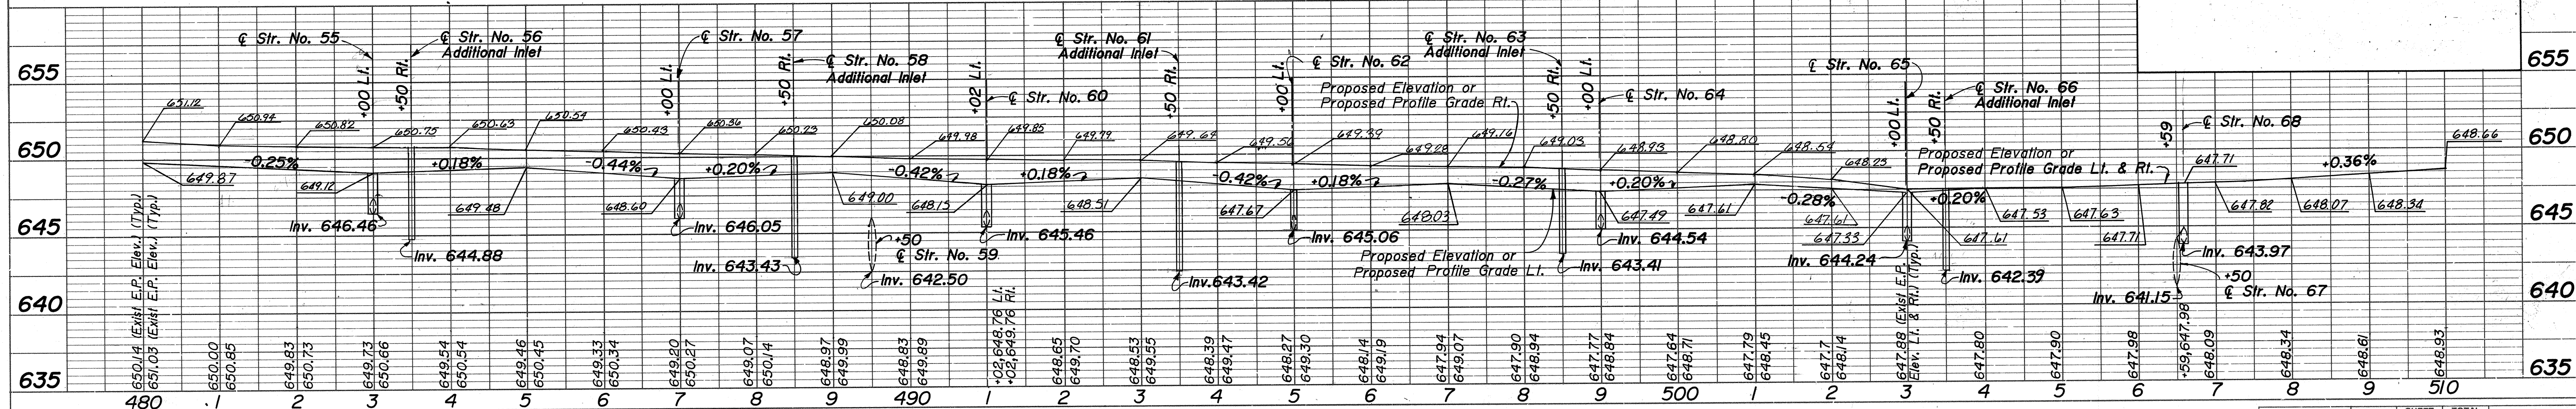 655
650
645
640
635
℄ Str. No. 55
℄ Str. No. 56
Additional Inlet
+00 Lt.
+50 Rt.
℄ Str. No. 57
+00 Lt.
℄ Str. No. 58
Additional Inlet
+50 Rt.
+02 Lt.
℄ Str. No. 60
℄ Str. No. 61
Additional Inlet
+50 Rt.
+00 Lt.
℄ Str. No. 62
Proposed Elevation or
Proposed Profile Grade Rt.
℄ Str. No. 63
Additional Inlet
+50 Rt.
+00 Lt.
℄ Str. No. 64
℄ Str. No. 65
+00 Lt.
+50 Rt.
℄ Str. No. 66
Additional Inlet
Proposed Elevation or
Proposed Profile Grade Lt. & Rt.
+59
℄ Str. No. 68
655
650
645
640
635
651.12
650.94
650.82
650.75
650.63
650.54
650.43
650.36
650.23
650.08
649.98
649.85
649.79
649.64
649.56
649.39
649.28
649.16
649.03
648.93
648.80
648.54
648.25
647.71
648.66
-0.25%
+0.18%
-0.44%
+0.20%
-0.42%
+0.18%
-0.42%
+0.18%
-0.27%
+0.20%
-0.28%
+0.20%
+0.36%
649.87
649.12
649.48
648.60
649.00
648.15
648.51
647.67
648.03
647.49
647.61
647.61
647.33
647.61
647.53
647.63
647.71
647.82
648.07
648.34
Inv. 646.46
Inv. 644.88
Inv. 646.05
Inv. 643.43
+50
℄ Str. No. 59
Inv. 642.50
Inv. 645.46
Inv. 643.42
Inv. 645.06
Proposed Elevation or
Proposed Profile Grade Lt.
Inv. 643.41
Inv. 644.54
Inv. 644.24
Inv. 642.39
Inv. 643.97
+50
℄ Str. No. 67
Inv. 641.15
650.14 (Exist E.P. Elev.) (Typ.)
651.03 (Exist E.P. Elev.) (Typ.)
650.00
650.85
649.83
650.73
649.73
650.66
649.54
650.54
649.46
650.45
649.33
650.34
649.20
650.27
649.07
650.14
648.97
649.99
648.83
649.89
+02,648.76 Lt.
+02,649.76 Rt.
648.65
649.70
648.53
649.55
648.39
649.47
648.27
649.30
648.14
649.19
647.94
649.07
647.90
648.94
647.77
648.84
647.64
648.71
647.79
648.45
647.7
648.14
647.88 (Exist E.P.
Elev. Lt. & Rt.) (Typ.)
647.80
647.90
647.98
+59,647.98
648.09
648.34
648.61
648.93
480 1 2 3 4 5 6 7 8 9 490 1 2 3 4 5 6 7 8 9 500 1 2 3 4 5 6 7 8 9 510
SHEET TOTAL